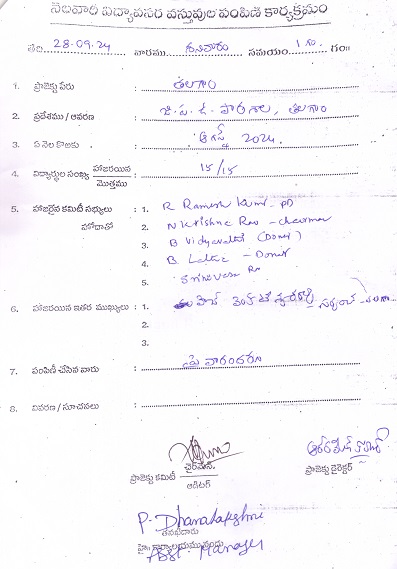 నెలవారీ విద్యావసర వస్తువుల పంపిణీ కార్యక్రమం
తేది 28-09-24 వారము శనివారం సమయం 1 గం. గం॥
1. ప్రాజెక్టు పేరు : తలగాం
2. ప్రదేశము / ఆవరణ : జి.ప.ఉ. పాఠశాల, తలగాం
3. ఏ నెల కొఱకు : ఆగస్ట్ 2024.
4. విద్యార్థుల సంఖ్య హాజరయిన / మొత్తము : 15/15
5. హాజరైన కమిటీ సభ్యులు : 1. R Ramesh Kumar - PD
హోదాతో 2. N Krishna Rao - Chairman
3. B Vidyavathi (Donor)
4. B Lalita - Donor
5. Srinivasa Rao
6. హాజరయిన ఇతర ముఖ్యులు : 1.
2.
3.
7. పంపిణీ చేసిన వారు : పై వారందరూ
8. వివరణ / సూచనలు :
ప్రాజెక్టు కమిటీ చైర్మన్ / ఆడిటర్
ప్రాజెక్టు డైరెక్టర్
P. Dhanalakshmi
తనిఖీదారు